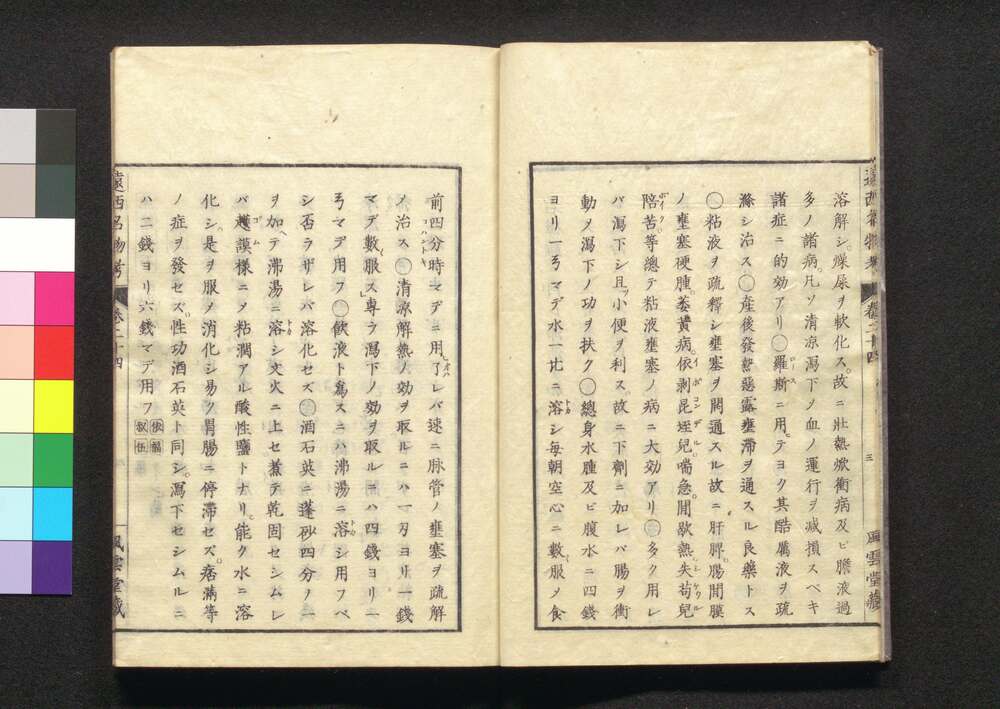 遠西名物考
卷二十四
三
風雲堂藏
溶解シ燥屎ヲ軟化ス故ニ壯熱焮衝病及ビ膽液過
多ノ諸病凡ソ清涼瀉下メ血ノ運行ヲ減損スベキ
諸症ニ的効アリ〇羅斯ニ用テヨク其酷厲液ヲ疏
滌シ治ス〇産後發熱惡露壅滯ヲ通スル良藥トス
〇粘液ヲ疏釋シ壅塞ヲ開通スル故ニ肝脾腸間膜
ノ壅塞硬腫萎黄病依剥昆垤兒喘急間歇熱失苟兒
陪苦等總テ粘液壅塞ノ病ニ大効アリ〇多ク用レ
バ瀉下シ且ツ小便ヲ利ス故ニ下劑ニ加レバ腸ヲ衝
動メ瀉下ノ功ヲ扶ク〇總身水腫及ビ腹水ニ四錢
ヨリ一弓マデ水一比ニ溶シ毎朝空心ニ數服メ食
前四分時マデニ用了レバ速ニ脉管ノ壅塞ヲ疏解
メ治ス〇清涼解熱ノ効ヲ取ルニハ一刃ヨリ一錢
マデ數服ス專ラ瀉下ノ効ヲ取ルニハ四錢ヨリ一
弓マデ用フ〇飲液ト爲スニハ沸湯ニ溶シ用フベ
シ否ラザレバ溶化セズ〇酒石英ニ蓬砂四分ノ一
ヲ加ヘテ沸湯ニ溶シ文火ニ上セ煮テ乾固セシムレ
バ護謨様ニメ粘潤アル酸性鹽トナリ能ク水ニ溶
化シ是ヲ服メ消化シ易ク胃腸ニ停滯セズ痞滿等
ノ症ヲ發セズ性功酒石英ト同シ瀉下セシムルニ
ハ二錢ヨリ六錢マデ用フ
遠西名物考
卷二十四
風雲堂藏